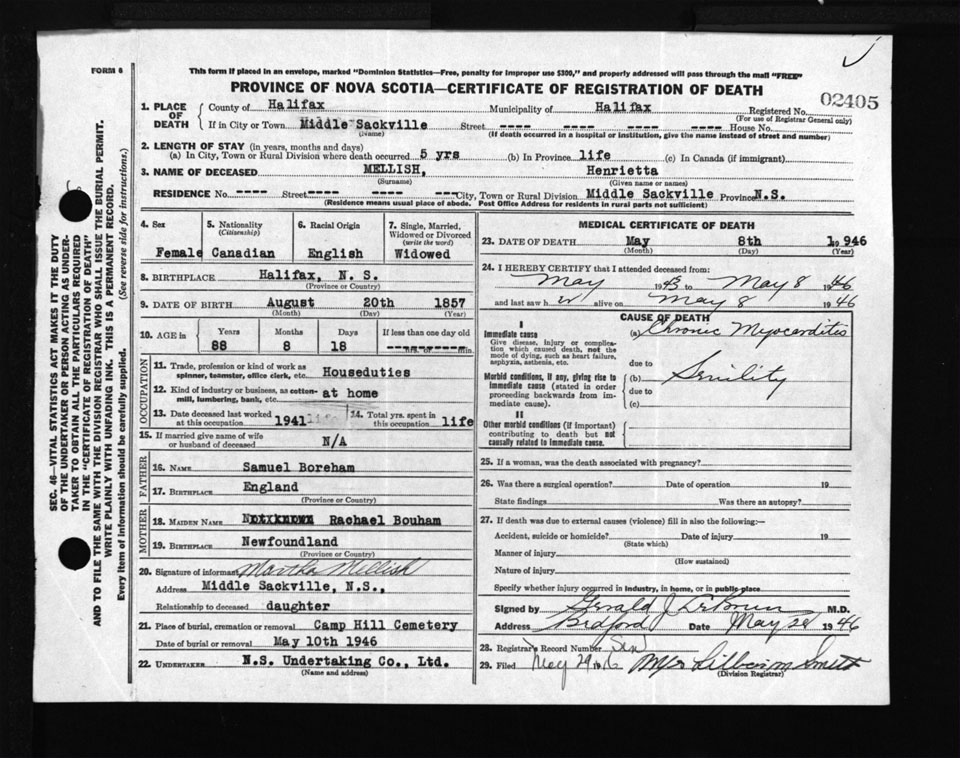 FORM 6
This form if placed in an envelope, marked "Dominion Statistics—Free, penalty for improper use $300," and properly addressed will pass through the mail "FREE"
PROVINCE OF NOVA SCOTIA—CERTIFICATE OF REGISTRATION OF DEATH
02405
1. PLACE OF DEATH
County of Halifax Municipality of Halifax Registered No.
(For use of Registrar General only)
If in City or Town Middle Sackville Street ---- ---- ---- ---- House No.
(Name) (If death occurred in a hospital or institution, give the name instead of street and number)
2. LENGTH OF STAY (in years, months and days)
(a) In City, Town or Rural Division where death occurred 5 yrs (b) In Province life (c) In Canada (if immigrant)
3. NAME OF DECEASED MELLISH, Henrietta
(Surname) (Given name or names)
RESIDENCE No. ---- Street ---- ---- --- City, Town or Rural Division Middle Sackville Province N.S.
(Residence means usual place of abode. Post Office Address for residents in rural parts not sufficient)
4. Sex
Female
5. Nationality
(Citizenship)
Canadian
6. Racial Origin
English
7. Single, Married, Widowed or Divorced
(write the word)
Widowed
8. BIRTHPLACE Halifax, N. S.
(Province or Country)
9. DATE OF BIRTH August 20th 1857
(Month) (Day) (Year)
10. AGE in
Years Months Days If less than one day old
88 8 18 hrs. or min.
OCCUPATION
11. Trade, profession or kind of work as spinner, teamster, office clerk, etc. Houseduties
12. Kind of industry or business, as cotton-mill, lumbering, bank, etc. at home
13. Date deceased last worked at this occupation 1941
14. Total yrs. spent in this occupation life
15. If married give name of wife or husband of deceased N/A
FATHER
16. NAME Samuel Boreham
17. BIRTHPLACE England
(Province or Country)
MOTHER
18. MAIDEN NAME Rachael Bouham
19. BIRTHPLACE Newfoundland
(Province or Country)
20. Signature of informant Martha Mellish
Address Middle Sackville, N.S.,
Relationship to deceased daughter
21. Place of burial, cremation or removal Camp Hill Cemetery
Date of burial or removal May 10th 1946
22. UNDERTAKER N.S. Undertaking Co., Ltd.
(Name and address)
MEDICAL CERTIFICATE OF DEATH
23. DATE OF DEATH May 8th 1946
(Month) (Day) (Year)
24. I HEREBY CERTIFY that I attended deceased from:
May 1943 to May 8 1946
and last saw her alive on May 8 1946
CAUSE OF DEATH
I
Immediate cause (a) Chronic Myocarditis
Give disease, injury or complication which caused death, not the mode of dying, such as heart failure, asphyxia, asthenia, etc.
due to
Morbid conditions, if any, giving rise to immediate cause (stated in order proceeding backwards from immediate cause).
(b) Senility
due to
(c)
II
Other morbid conditions (if important) contributing to death but not causally related to immediate cause.
25. If a woman, was the death associated with pregnancy?
26. Was there a surgical operation? Date of operation 19
State findings Was there an autopsy?
27. If death was due to external causes (violence) fill in also the following:—
Accident, suicide or homicide? Date of injury 19
(State which)
Manner of injury
(How sustained)
Nature of injury
Specify whether injury occurred in industry, in home, or in public place
Signed by Gerald J. LeBrun M.D.
Address Bedford Date May 28 1946
28. Registrar's Record Number Six
29. Filed May 29 1946 Smith
(Division Registrar)
SEC. 46—VITAL STATISTICS ACT MAKES IT THE DUTY
OF THE UNDERTAKER OR PERSON ACTING AS UNDER-
TAKER TO OBTAIN ALL THE PARTICULARS REQUIRED
IN THE "CERTIFICATE OF REGISTRATION OF DEATH"
AND TO FILE THE SAME WITH THE DIVISION REGISTRAR WHO SHALL ISSUE THE BURIAL PERMIT.
WRITE PLAINLY WITH UNFADING INK. THIS IS A PERMANENT RECORD.
Every item of information should be carefully supplied. (See reverse side for instructions.)